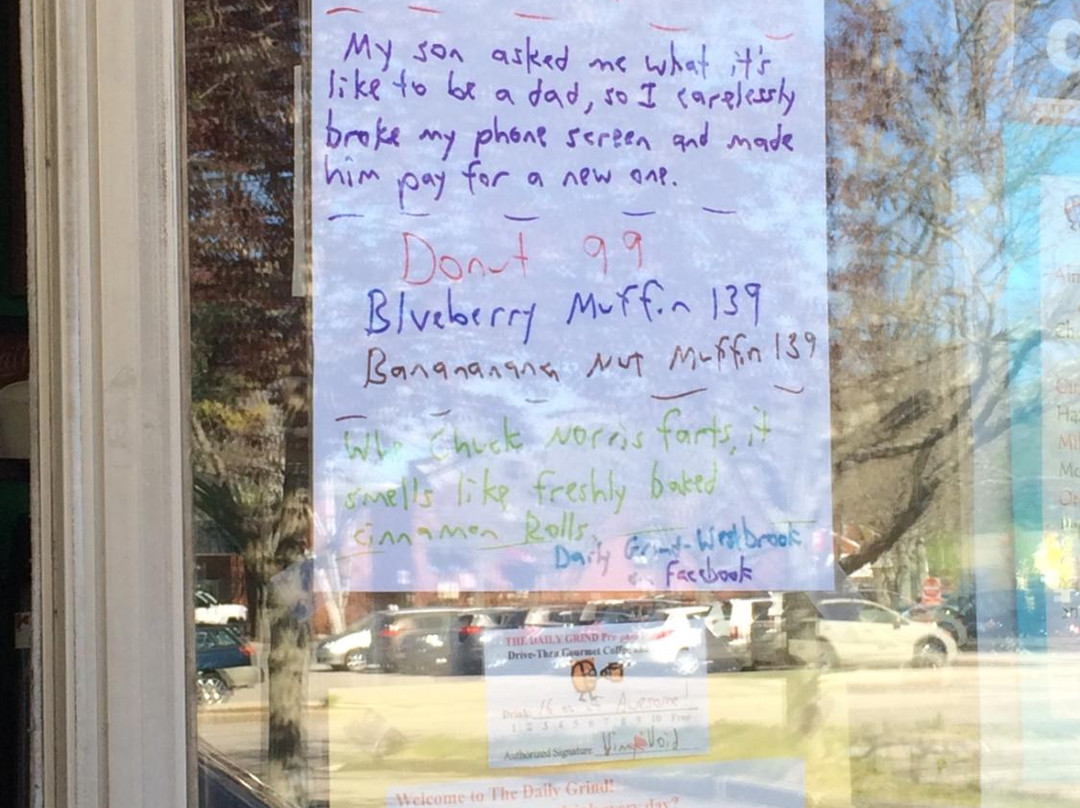 My son asked me what it's
like to be a dad, so I carelessly
broke my phone screen and made
him pay for a new one.
Donut 99
Blueberry Muffin 139
Banananana Nut Muffin 139
Chuck Norris farts, it
smells like freshly baked
cinnamon Rolls.
Daily Grind-Westbrook
Facebook
THE DAILY GRIND
Drive-Thru Gourmet
Drink Awesome!
1 2 3 4 5 6 7 8 9 10 Free
Authorized Signature Void
Welcome to The Daily Grind!
day?